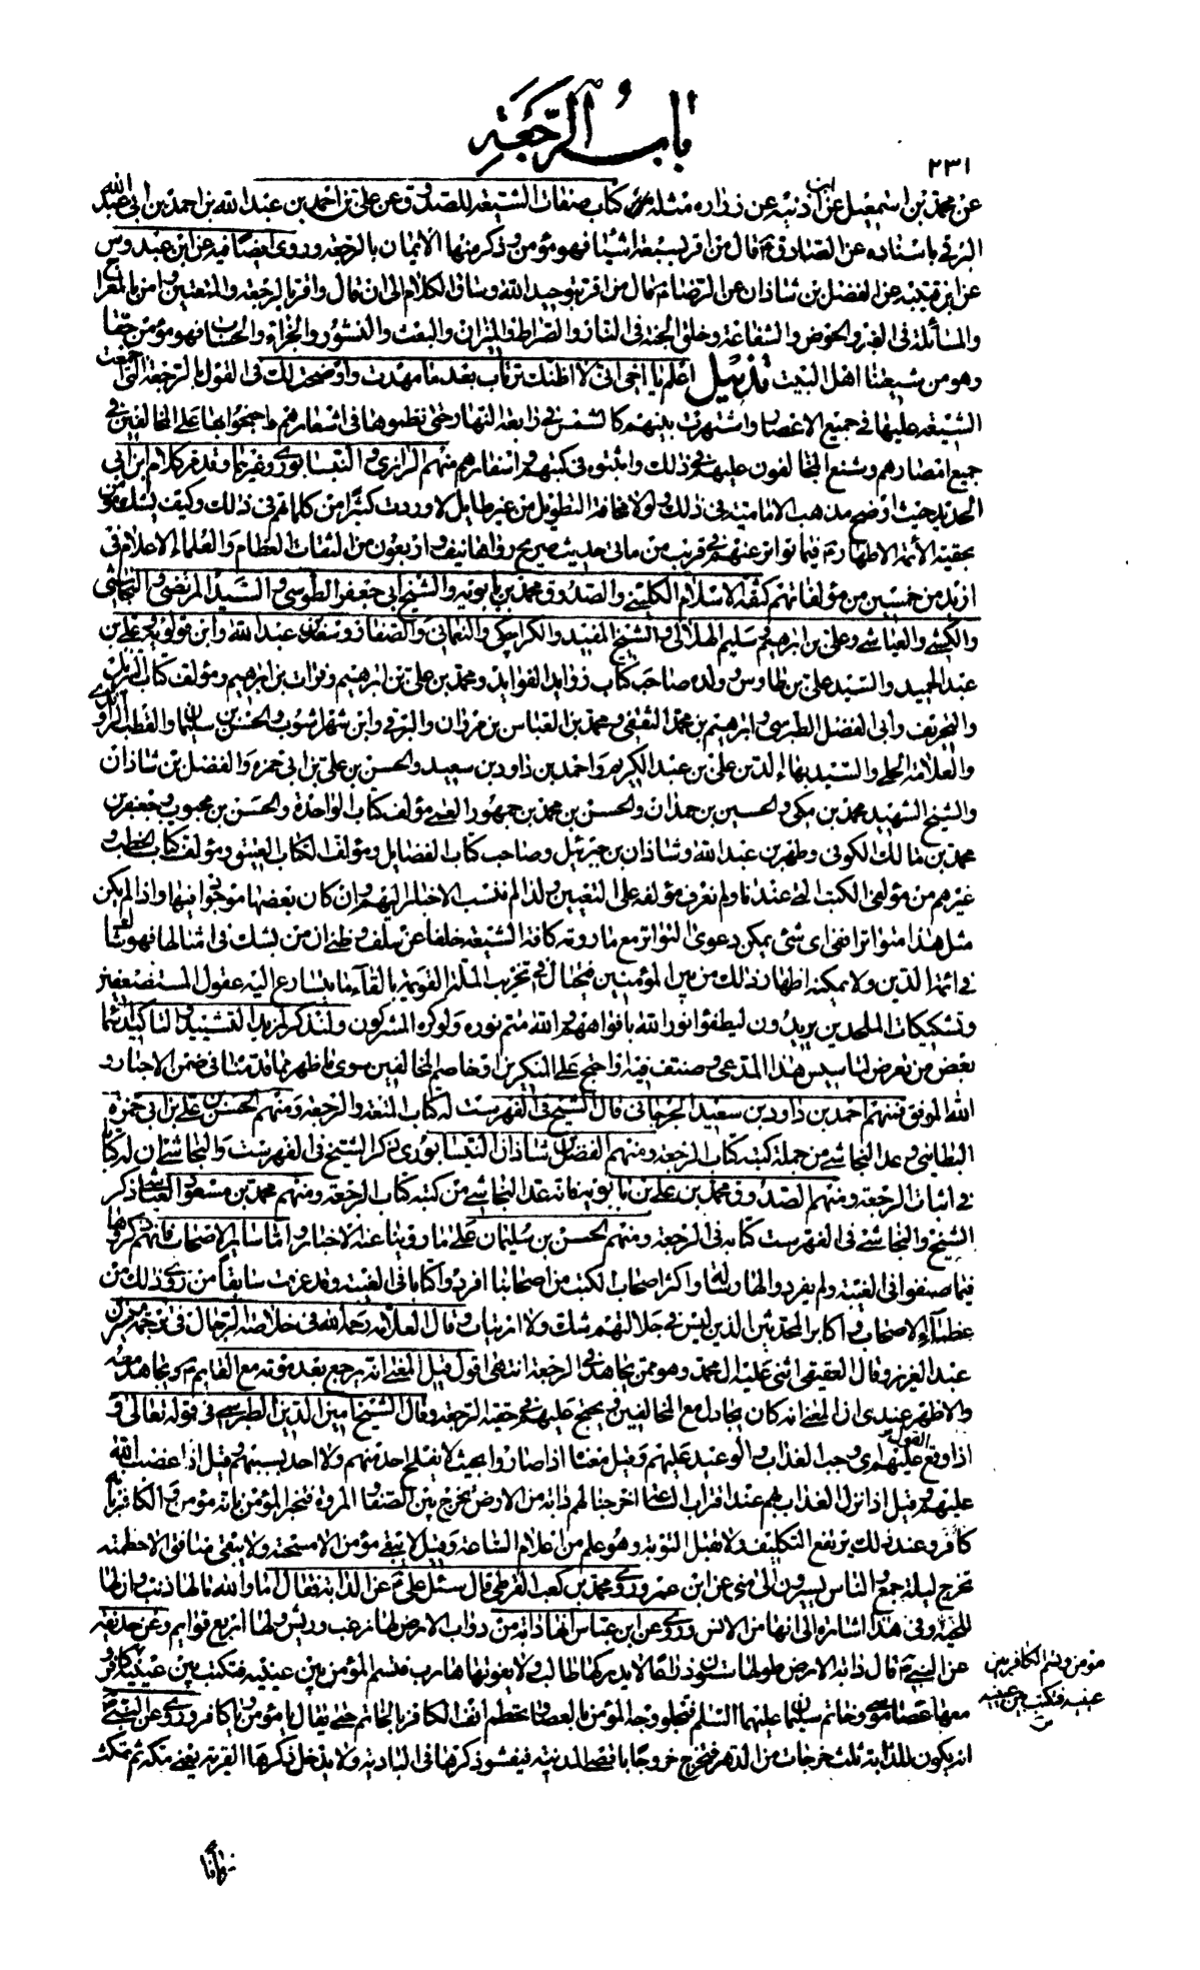 باب الرجعة
٢٣١
عن محمد بن اسمعيل عن ابن اذنيه عن زراره مثله كتاب صفات الشيعة للصدوق عن علي بن احمد بن عبد الله بن احمد بن ابي عبد الله
البرقي باسناده عن الصادق ع قال من اقر بسبعة اشياء فهو مؤمن وذكر منها الايمان بالرجعة وروى ايضا فيه عن ابن عبدوس
عن ابن قتيبة عن الفضل بن شاذان عن الرضا ع قال من اقر بتوحيد الله وساق الكلام الى ان قال واقر بالرجعة والمتعتين وامن بالمعراج
والمسائلة في القبر والحوض والشفاعة وخلق الجنة والنار والصراط والميزان والبعث والنشور والجزاء والحساب فهو مؤمن حقا
وهو من شيعتنا اهل البيت تذييل اعلم يا اخي اني لا اظنك ترتاب بعد ما مهدت واوضحت لك في القول بالرجعة التي اجمعت
الشيعة عليها في جميع الاعصار واشتهرت بينهم كالشمس في رابعة النهار حتى نظموها في اشعارهم واحتجوا بها على المخالفين في
جميع امصارهم وشنع المخالفون عليهم في ذلك واثبتوه في كتبهم واسفارهم منهم الرازي والنيسابوري وغيرهما وقد مر كلام ابن ابي
الحديد حيث اوضح مذهب الامامية في ذلك ولولا مخافة التطويل من غير طايل لاوردت كثيرا من كلماتهم في ذلك وكيف يشك مؤمن
بحقية الأئمة الاطهار ع فيما تواتر عنهم في قريب من مائتي حديث صريح رواها نيف واربعون من الثقات العظام والعلماء الاعلام في
ازيد من خمسين من مؤلفاتهم كثقة الاسلام الكليني والصدوق محمد بن بابويه والشيخ ابي جعفر الطوسي والسيد المرتضى والنجاشي
والكشي والعياشي وعلي بن ابرهيم وسليم الهلالي والشيخ المفيد والكراجكي والنعماني والصفار وسعد بن عبد الله وابن قولويه وعلي بن
عبد الحميد والسيد علي بن طاوس وولده صاحب كتاب زوايد الفوايد ومحمد بن علي بن ابرهيم وفرات بن ابرهيم ومؤلف كتاب التنزيل
والتحريف وابي الفضل الطبرسي وابرهيم بن محمد الثقفي ومحمد بن العباس بن مروان والبرقي وابن شهراشوب والحسن بن سليمان والقطب الراوندي
والعلامة الحلي والسيد بهاء الدين علي بن عبد الكريم واحمد بن داود بن سعيد والحسن بن علي بن ابي حمزه والفضل بن شاذان
والشيخ الشهيد محمد بن مكي والحسين بن حمدان والحسن بن محمد بن جمهور العمي مؤلف كتاب الواحدة والحسن بن محبوب وجعفر بن
محمد بن مالك الكوفي وطهر بن عبد الله وشاذان بن جبرئيل وصاحب كتاب الفضايل ومؤلف الكتاب العتيق ومؤلف كتاب الخطب و
غيرهم من مؤلفي الكتب التي عندنا ولم نعرف مؤلفه على التعيين ولذا لم ننسب الاخبار اليهم وان كان بعضها موجودا فيها واذا لم يكن
مثل هذا متواترا ففي اي شئ يمكن دعوى التواتر مع ما روته كافة الشيعة خلفا عن سلف وظني ان من يشك في امثالها فهو شاك
في ائمة الدين ولا يمكنه اظهار ذلك من بين المؤمنين فيحتال في تخريب الملة القويمة بالقاء ما يتسارع اليه عقول المستضعفين
وتشكيكات الملحدين يريدون ليطفئوا نور الله بافواههم والله متم نوره ولو كره المشركون ولنذكر لمزيد التشييد والتاكيد اسماء
بعض من تعرض لتاسيس هذا المدعى وصنف فيه او احتج على المنكرين او خاصم المخالفين سوى ما ظهر مما قدمنا في ضمن الاخبار و
الله الموفق فمنهم احمد بن داود بن سعيد الجرجاني قال الشيخ في الفهرست له كتاب المتعة والرجعة ومنهم الحسن بن علي بن ابي حمزة
البطايني وعد النجاشي من جملة كتبه كتاب الرجعة ومنهم الفضل بن شاذان النيسابوري ذكر الشيخ في الفهرست والنجاشي ان له كتابا
في اثبات الرجعة ومنهم الصدوق محمد بن علي بن بابويه فانه عد النجاشي من كتبه كتاب الرجعة ومنهم محمد بن مسعود العياشي ذكر
الشيخ والنجاشي في الفهرست كتابه في الرجعة ومنهم الحسن بن سليمان على ما روينا عنه الاخبار واما سائر الاصحاب فانهم ذكروها
فيما صنفوا في الغيبة ولم يفردوا لها رسالة واكثر اصحاب الكتب من اصحابنا افردوا كتابا في الغيبة وقد عرفت سابقا من روى ذلك من
عظماء الاصحاب واكابر المحدثين الذين ليس في جلالتهم شك ولا ارتياب وقال العلامة رحمه الله في خلاصة الرجال في ترجمة ميسر بن
عبد العزيز وقال العقيقي اثنى عليه ال محمد وهو ممن يجاهد في الرجعة انتهى اقول قيل المعنى انه يرجع بعد موته مع القايم ع ويجاهد معه
والاظهر عندي ان المعنى انه كان يجادل مع المخالفين ويحتج عليهم في حقية الرجعة وقال الشيخ امين الدين الطبرسي في قوله تعالى و
اذا وقع القول عليهم اي وجب العذاب والوعيد عليهم وقيل معناه اذا صاروا بحيث لا يفلح احد منهم ولا احد بسببهم وقيل اذا غضب الله
عليهم وقيل اذا نزل العذاب بهم عند اقتراب الساعة اخرجنا لهم دابة من الارض تخرج بين الصفا والمروة فتخبر المؤمن بانه مؤمن والكافر بانه
كافر وعند ذلك يرتفع التكليف ولا تقبل التوبة وهو علم من اعلام الساعة وقيل لا يبقى مؤمن الا مسحته ولا يبقى منافق الا خطمته
تخرج ليلة جمع والناس يسيرون الى منى عن ابن عمر وروى محمد بن كعب القرظي قال سئل علي ع عن الدابة فقال اما والله ما لها ذنب وان لها
للحية وفي هذا اشارة الى انها من الانس وروى عن ابن عباس انها دابة من دواب الارض لها زغب وريش ولها اربع قوايم وعن حذيفة
عن النبي ص قال دابة الارض طولها ستون ذراعا لا يدركها طالب ولا يفوتها هارب فتسم المؤمن بين عينيه فتكتب بين عينيه كافر و
معها عصا موسى وخاتم سليمان عليهما السلم فتجلو وجه المؤمن بالعصا وتحطم انف الكافر بالخاتم حتى يقال يا مؤمن ويا كافر وروى عن النبي ص
انه يكون للدابة ثلث خرجات من الدهر فتخرج خروجا باقصى المدينة فيفشو ذكرها في البادية ولا يدخل ذكرها القرية يعني مكة ثم تمكث
مؤمن وتسم الكافر بين
عينيه فتكتب بين عينيه
زمانا